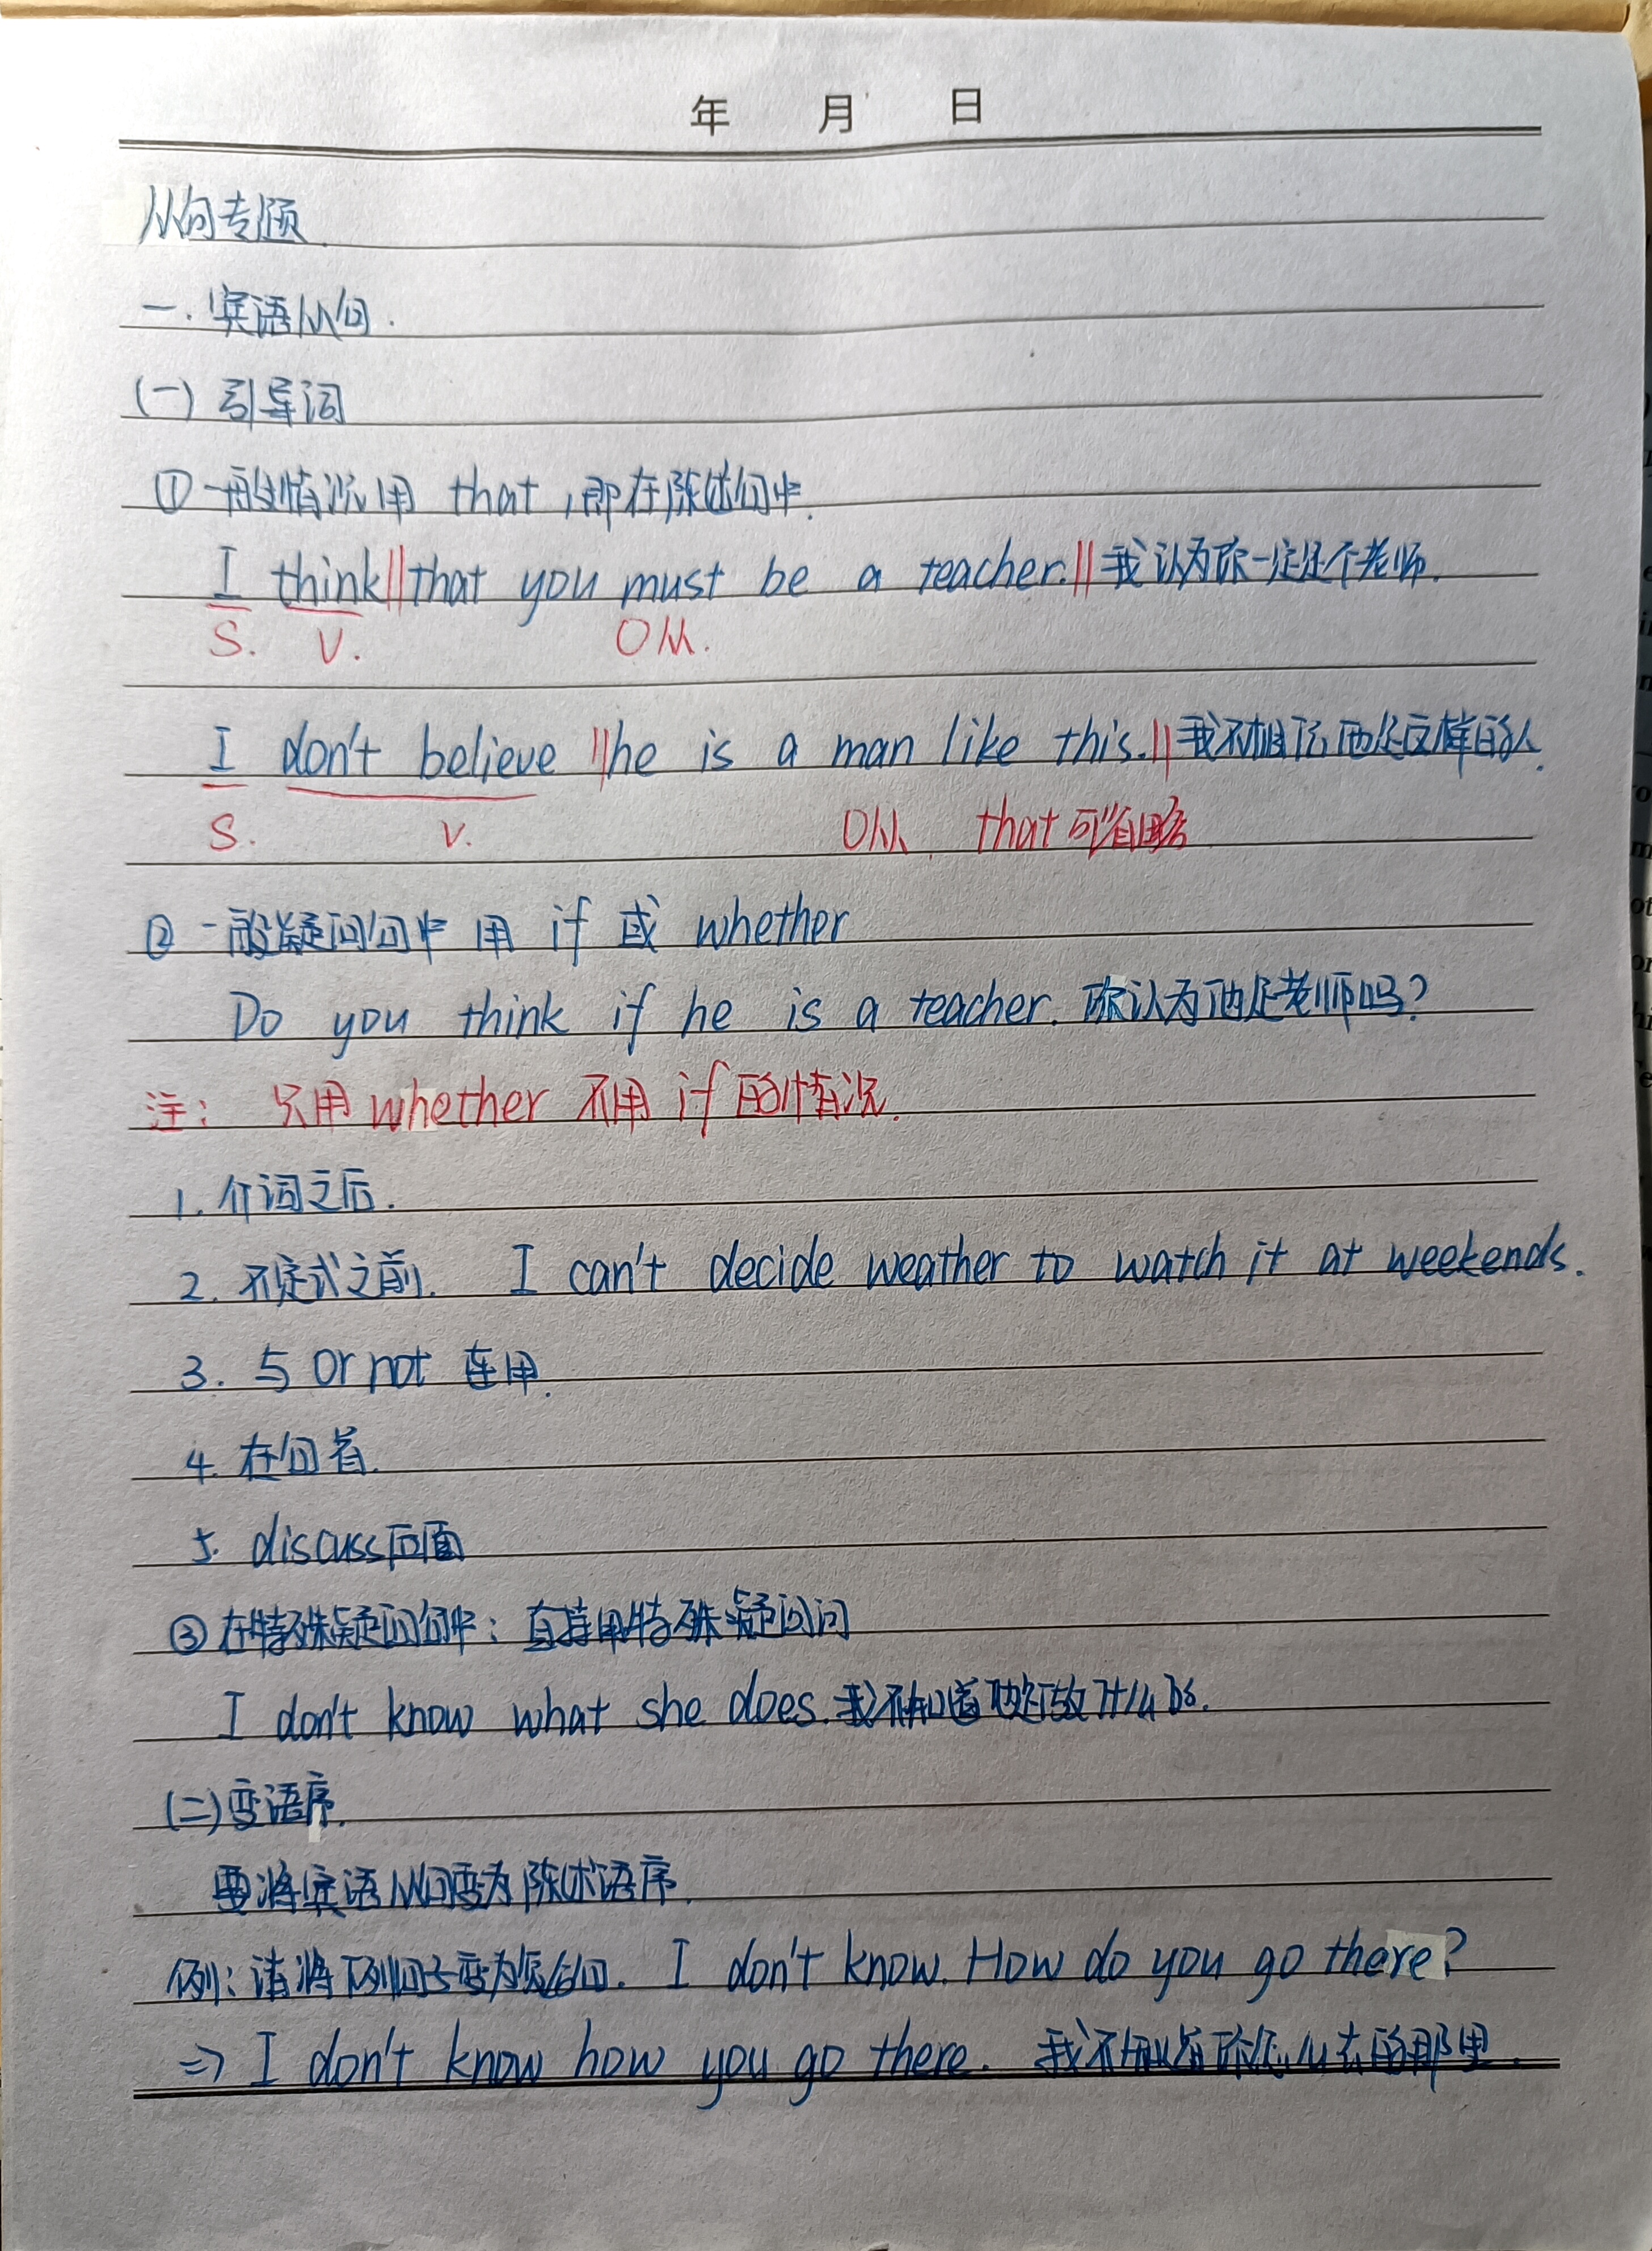 年 月 日
从句专题
一. 宾语从句.
(一) 引导词
① 一般情况用 that, 即在陈述句中.
I think||that you must be a teacher.||我认为你一定是个老师.
S. V. O从.
I don't believe ||he is a man like this.||我不相信他是这样的人.
S. V. O从. that可省略
② 一般疑问句中 用 if 或 whether
Do you think if he is a teacher. 你认为他是老师吗?
注: 只用 whether 不用 if 的情况.
1. 介词之后.
2. 不定式之前. I can't decide weather to watch it at weekends.
3. 与 or not 连用.
4. 在句首.
5. discuss后面
③ 在特殊疑问句中: 直接用特殊疑问词
I don't know what she does. 我不知道她是做什么的.
(二) 变语序.
要将宾语从句变为陈述语序.
例: 请将下列句子变为复合句. I don't know. How do you go there?
=> I don't know how you go there. 我不知道你怎么去的那里.